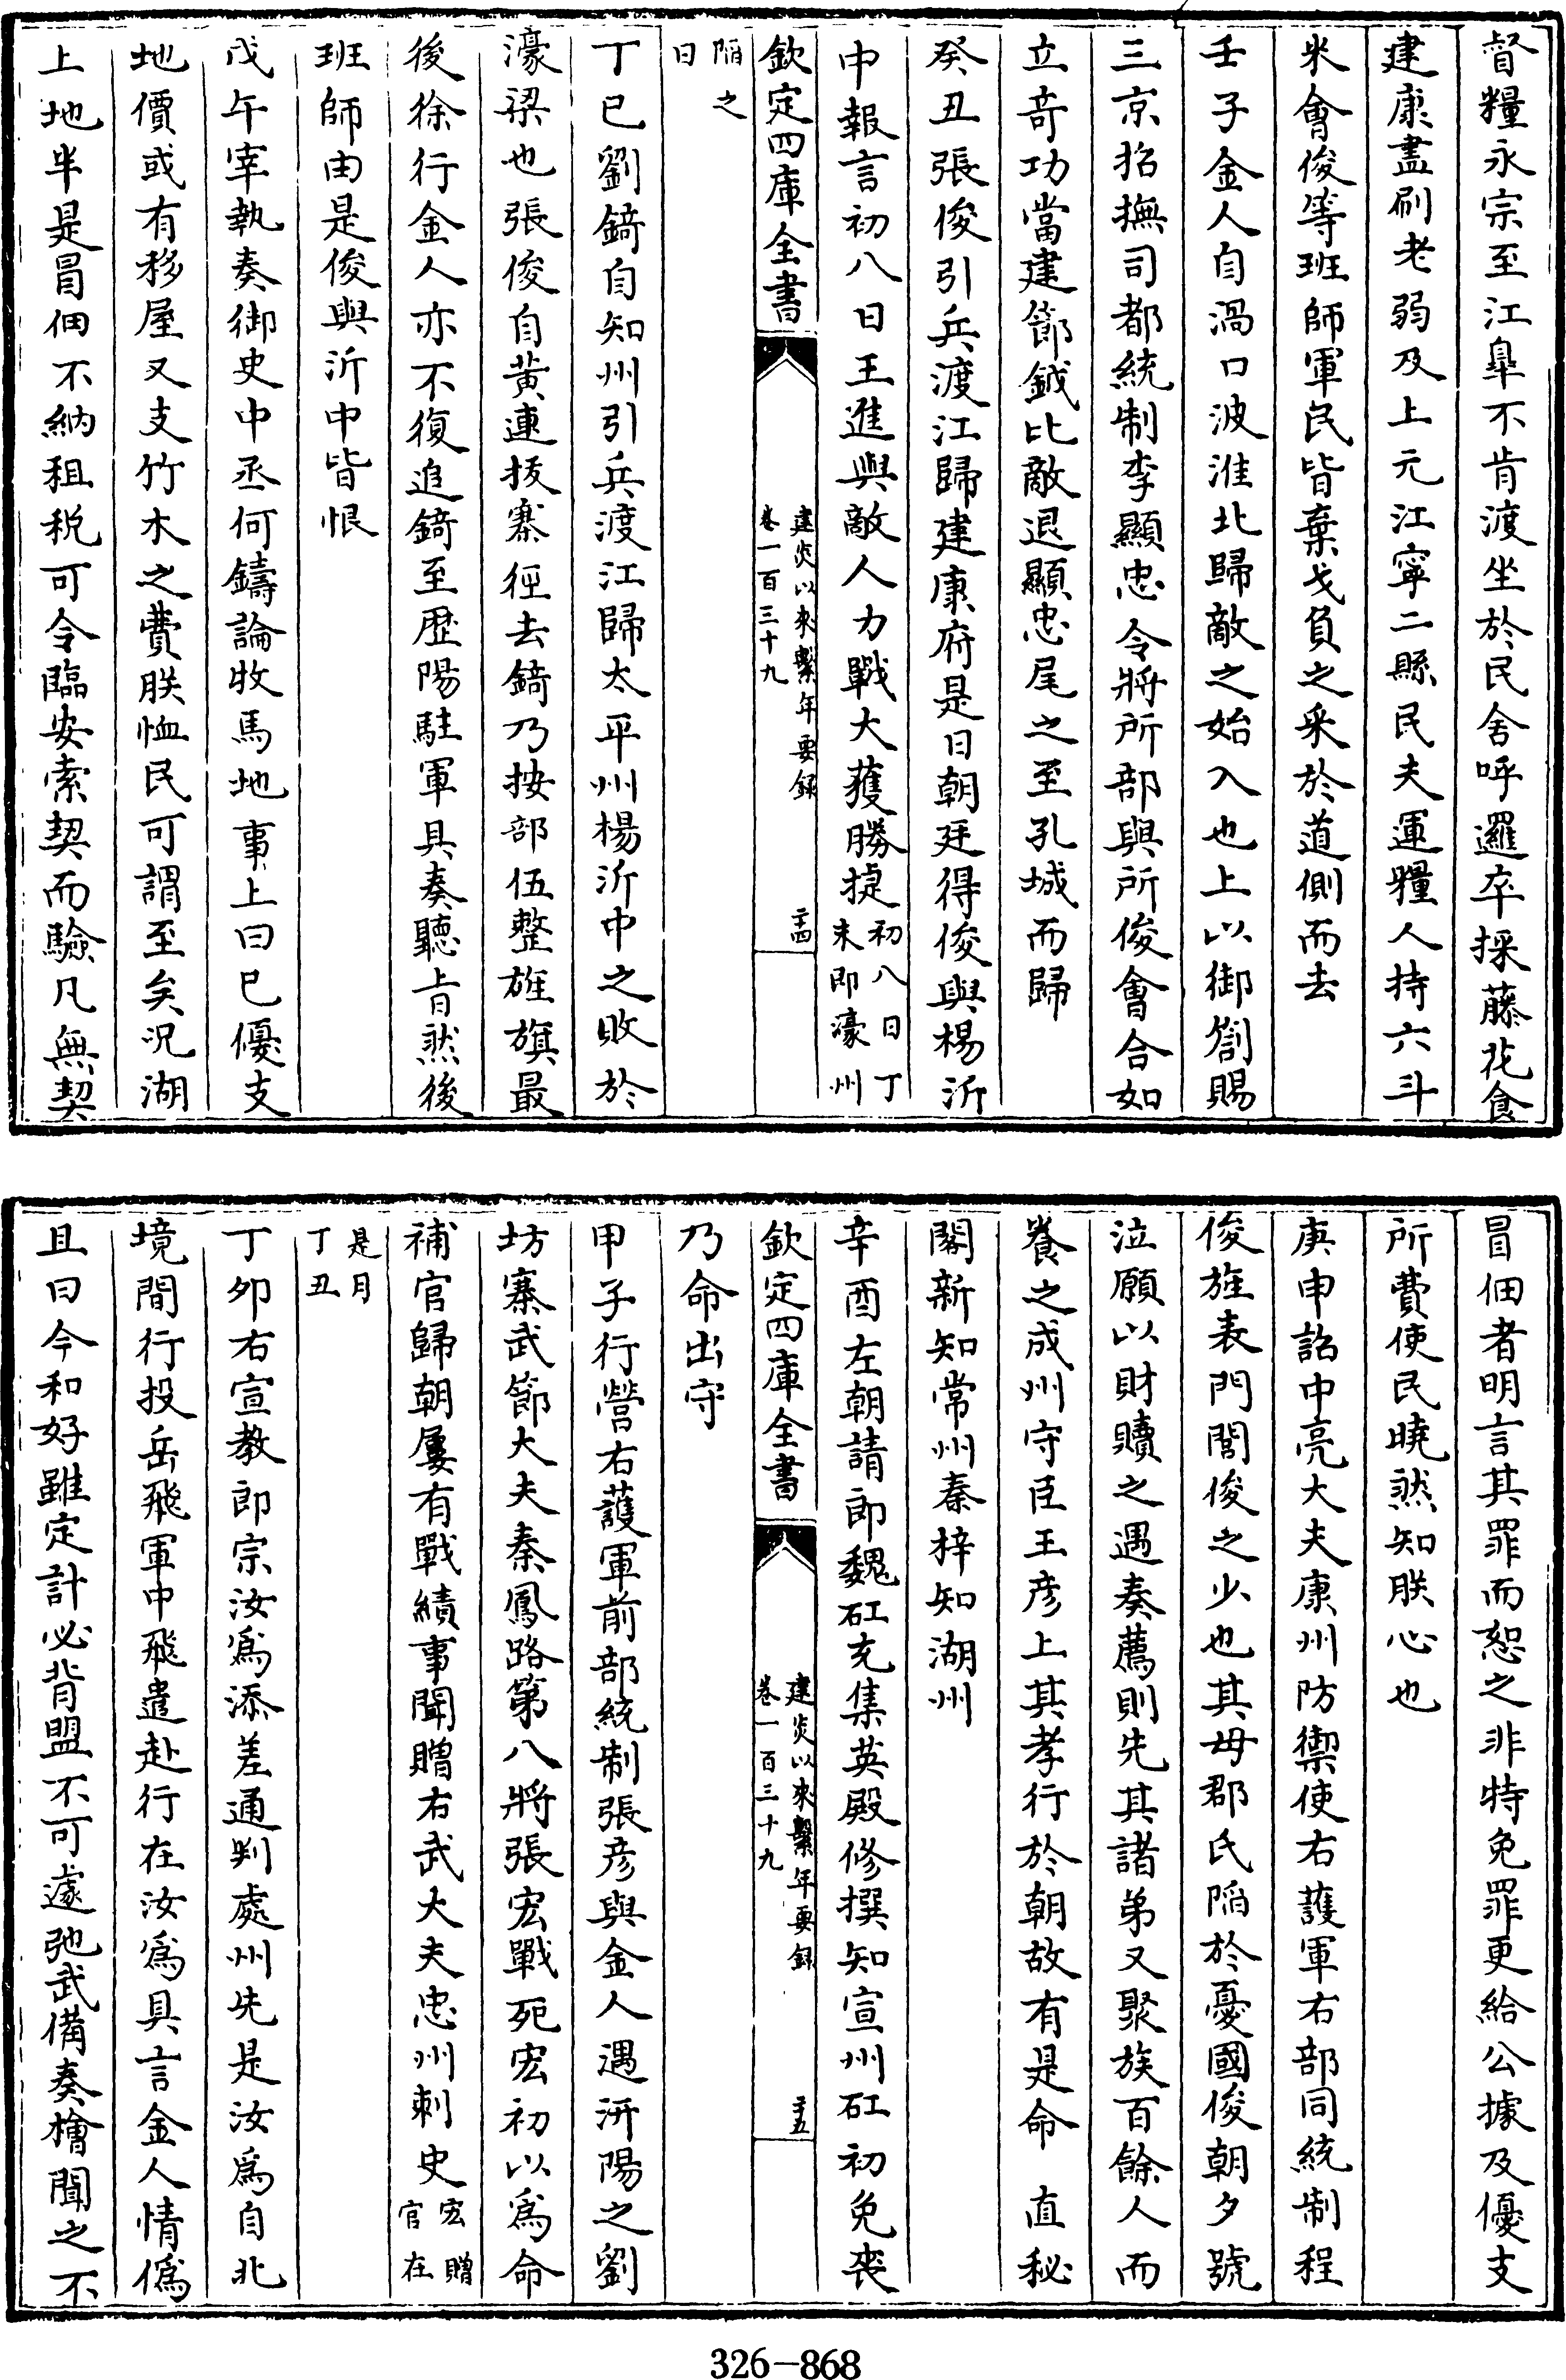 督糧永宗至江臯不肯渡坐於民舍呼邏卒採藤花食
建康盡刷老弱及上元江寜二縣民夫運糧人持六斗
米㑹俊等班師軍民皆棄戈負之釆於道側而去
壬子金人自渦口波淮北歸敵之始入也上以御劄賜
三京招撫司都統制李顯忠令將所部與所俊㑹合如
立奇功當建節鉞比敵退顯忠尾之至孔城而歸
癸丑張俊引兵渡江歸建康府是日朝廷得俊與楊沂
中報言初八日王進與敵人力戰大獲勝捷初八日丁未即濠州
欽定四庫全書
建炎以來繫年要録
卷一百三十九
二十四
陷之日
丁已劉錡自知州引兵渡江歸太平州楊沂中之敗於
濠梁也張俊自黄連拔寨徑去錡乃按部伍整旌旗最
後徐行金人亦不復追錡至歴陽駐軍具奏聽㫖然後
班師由是俊與沂中皆恨
戊午宰執奏御史中丞何鑄論牧馬地事上曰已優支
地價或有移屋又支竹木之費朕恤民可謂至矣况湖
上地半是冒佃不納租税可令臨安索契而驗凡無契
冒佃者明言其罪而恕之非特免罪更給公據及優支
所費使民曉然知朕心也
庚申詔中亮大夫康州防禦使右護軍右部同統制程
俊旌表門閭俊之少也其母郡氏陷於憂國俊朝夕號
泣願以財贖之遇奏薦則先其諸弟又聚族百餘人而
養之成州守臣王彦上其孝行於朝故有是命 直秘
閣新知常州秦梓知湖州
辛酉左朝請郎魏矼充集英殿修撰知宣州矼初免喪
欽定四庫全書
建炎以來繫年要録
卷一百三十九
二十五
乃命出守
甲子行營右護軍前部統制張彦與金人遇汧陽之劉
坊寨武節大夫秦鳳路第八將張宏戰死宏初以為命
補官歸朝屢有戰績事聞贈右武大夫忠州刺史宏贈官在
是月丁丑
丁夘右宣教郎宗汝為添差通判處州先是汝為自北
境間行投岳飛軍中飛遣赴行在汝為具言金人情偽
且曰今和好雖定計必背盟不可遽弛武備奏檜聞之不
326-868